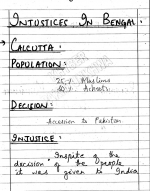 INJUSTICES IN BENGAL:
CALCUTTA:
POPULATION:
25% Muslims
DECISION:
Accession to Pakistan
INJUSTICE:
Inspite of the
decision of the people
it was given to India